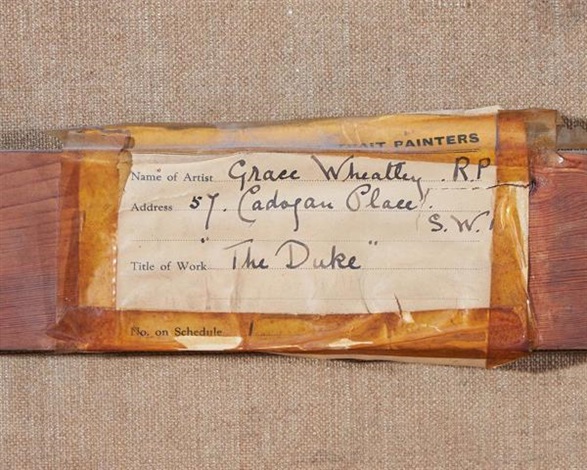 PAINTERS
Name of Artist Grace Wheatley . R.P
Address 57. Cadogan Place.
S.W.1
Title of Work "The Duke"
No. on Schedule 1